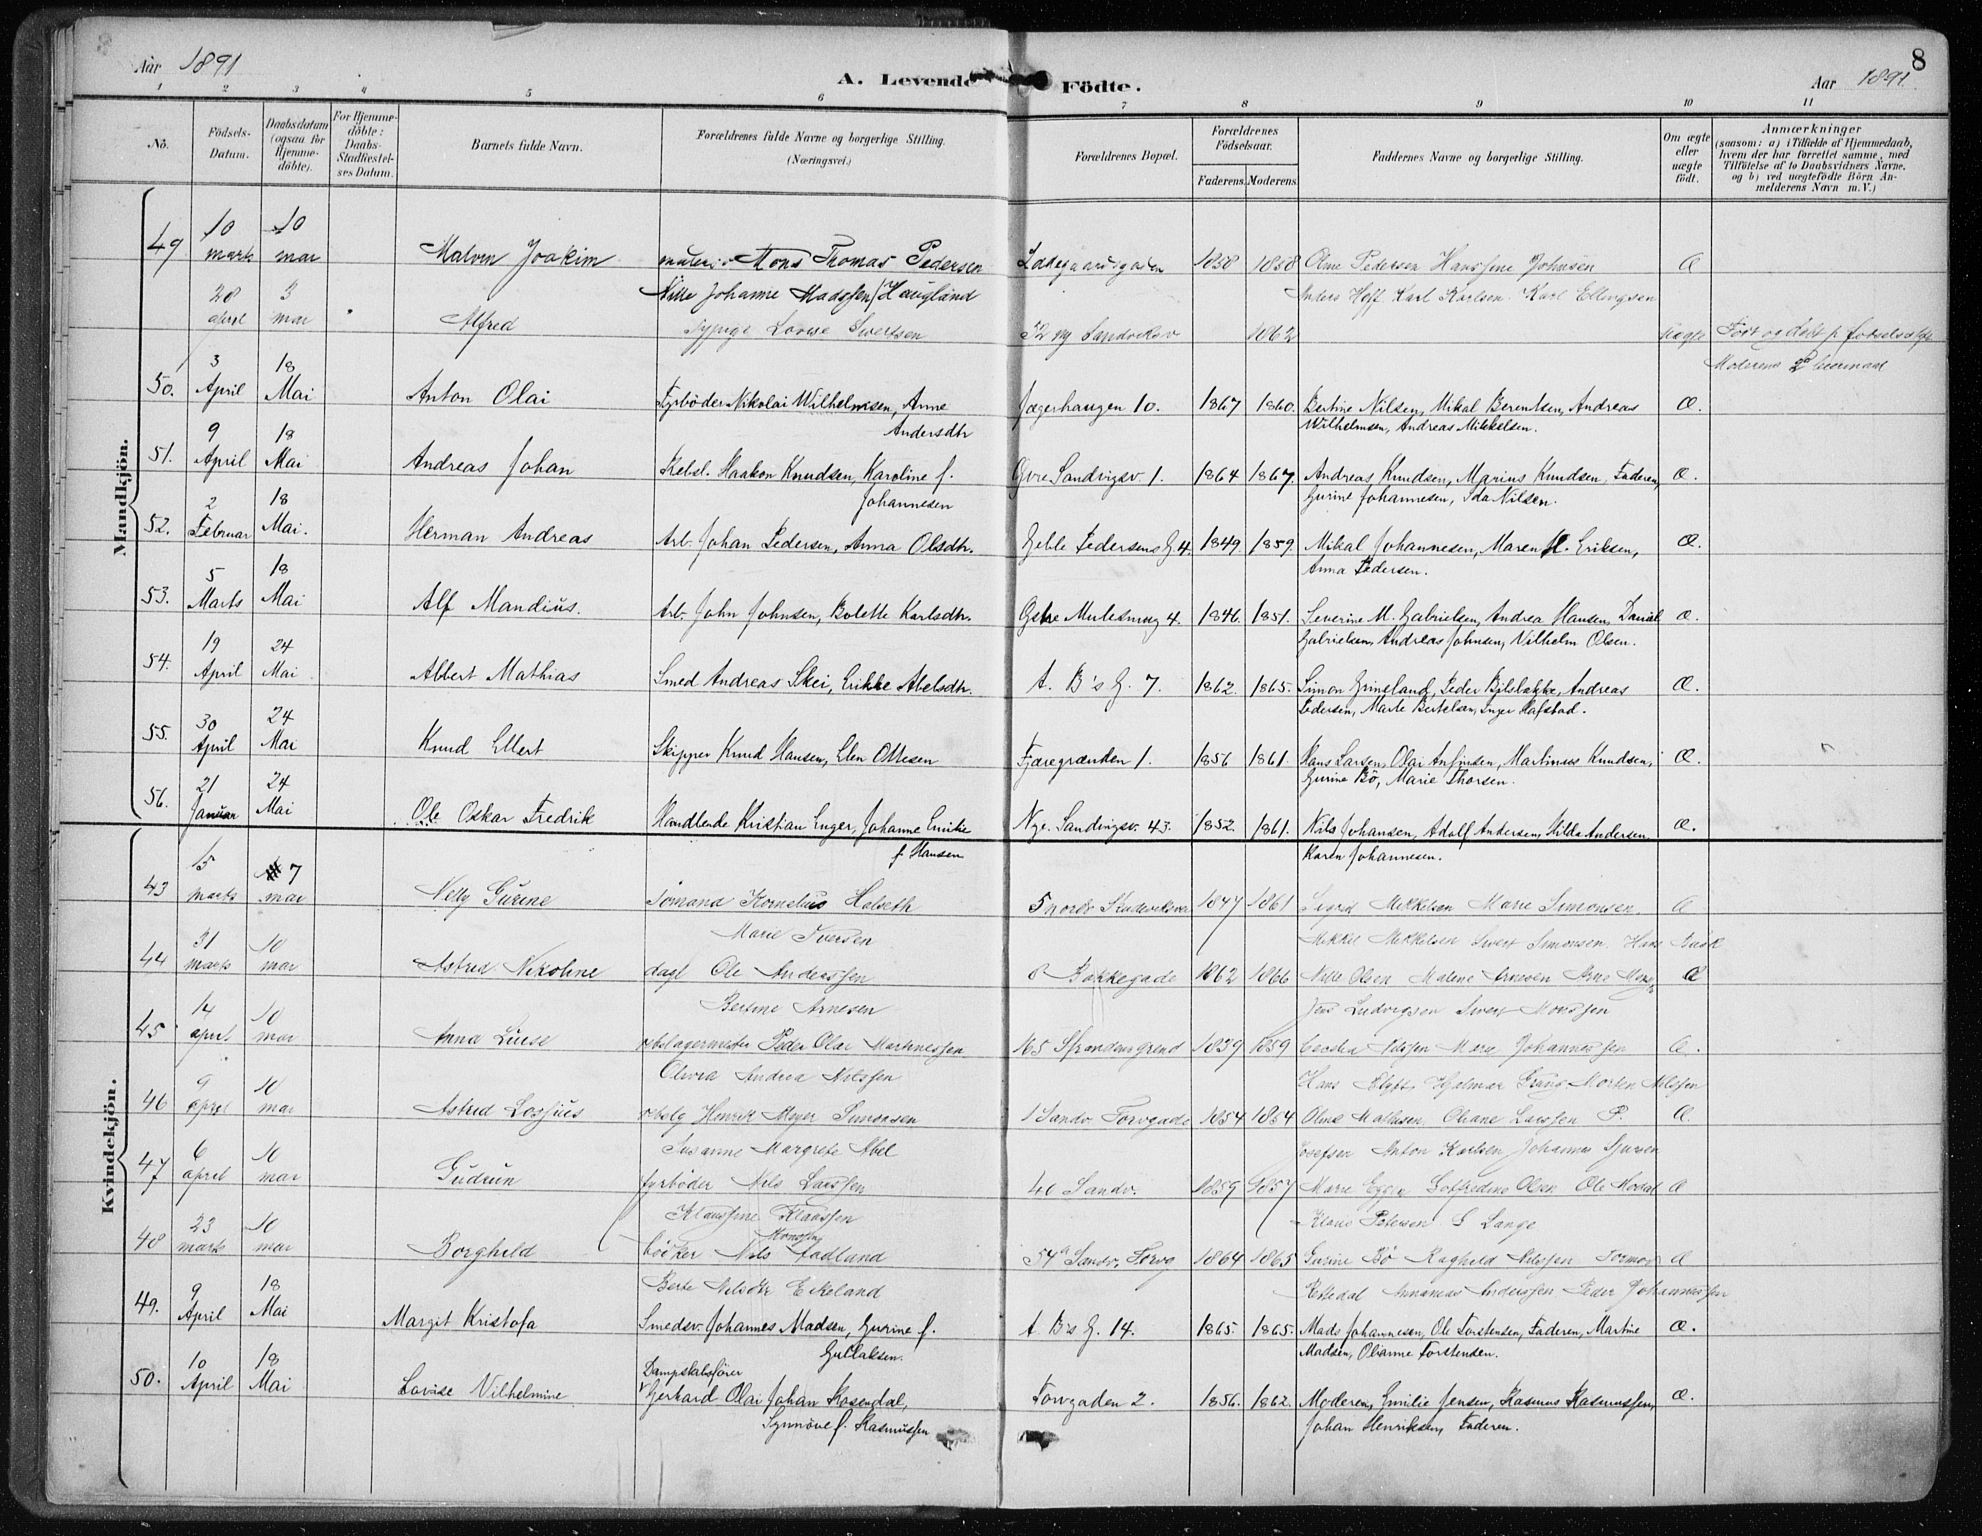 8
Aar 1891 A. Levende Födte. Aar 1891
1 2 3 4 5 6 7 8 9 10 11
No. Födsels-Datum. Daabsdatum (ogsaa for Hjemme-döbte). For Hjemme-döbte: Daabs-Stadfæstel-ses Datum. Barnets fulde Navn. Forældrenes fulde Navne og borgerlige Stilling. (Næringsvei.) Forældrenes Bopæl. Forældrenes Födselsaar. Faderens. Moderens. Faddernes Navne og borgerlige Stilling. Om ægte eller uægte födt. Anmærkninger (saasom: a) i Tilfælde af Hjemmedaab, hvem der har forrettet samme, med Tilföielse af to Daabsvidners Navne. og b) ved uægtefödte Börn An-melderens Navn m. V.)
Mandkjön.
49 10 marts 10 mai Malvin Joakim Mons Thomas Pedersen Ladegaardsgaden 1858 1858 Oline Pedersen Hanssine Johnsen Æ
Nille Johanne Madssen Haugland Anders Hoff Karl Karlsen Karl Ellingsen
28 april 3 mai Alfred Lovise Sivertsen 72 ny Sandviksv 1862 uægte Født og døbt p fødselsst
Moderens 2 leiermaal
50. 3 April 18 Mai Anton Olai Fyrbøder Nikolai Wilhelmsen, Anne Jægerhaugen 10. 1867 1860. Bertine Nilsen, Mikal Berentsen, Andreas Æ.
Andersdtr Wilhelmsen, Andreas Mikkelsen.
51. 9 April 18 Mai Andreas Johan Rebsl. Haakon Knudsen, Karoline f. Øvre Sandvigsv. 1. 1864 1867. Andreas Knudsen, Marius Knudsen, Faderen, Æ.
Johannesen Gurine Johannesen, Ida Nilsen.
52. 2 Februar 18 Mai. Herman Andreas Arb. Johan Pedersen, Anna Olsdtr. Geble Pedersens G. 4. 1849. 1859. Mikal Johannesen, Maren H. Eriksen, Æ.
Anna Pedersen.
53. 5 Marts 18 Mai Alf Mandius. Arb. John Johnsen, Bolette Karlsdtr. Østre Mulesmug 4. 1846. 1851. Severine M. Gabrielsen, Andrea Hansen, Daniel Æ.
Gabrielsen, Andreas Johnsen, Vilhelm Olsen.
54. 19 April 24 Mai Albert Mathias Smed Andreas Skei, Erikke Abelsdtr. A. B's G. 7. 1862. 1865. Simon Grimeland, Peder Andreas Æ.
Pedersen, Marte Bertelsen, Inger Hafstad.
55. 30 April 24 Mai Knud Ellert Skipper Knud Hansen, Elen Ottesen Fjæregrænden 1. 1856 1861. Hans Larsen, Olai Anfindsen, Martinus Knudsen, Æ.
Gurine Bø, Marie Thorsen.
56. 21 Januar 24 Mai Ole Oskar Fredrik Handlende Kristian Unger, Johanne Emilie Nye. Sandvigsv. 43. 1852. 1861. Nils Johansen, Adolf Andersen, Hilda Andersen, Æ.
f. Hansen Karen Johannesen.
Kvindekjön.
43 15 marts 7 mai Nelly Gurine Sømand Kornelius Halseth 5 nordre Skudeviksvei 1847 1861 Sigrid Mikkelsen Marie Simonsen. Æ
Marie Iversen Mikkel Mikkelsen Sivert Simonsen, Hans
44 31 marts 10 mai Astrid Nikoline dagl Ole Anderssen 8 Bakkegade 1862 1866 Nille Olsen Malene Arnesen Arne Æ
Bertine Arnesen Jens Ludvigsen Sivert Monssen
45 14 april 10 mai Anna Luise rebslagermester Peder Olai Martinessen 165 1839 1859 Cecilia Nilssen Marie Johannessen Æ.
Olivia Andrea Nilssen Hans Hjalmar Morten Nilssen
46 9 april 10 mai Astrid rebslg Henrik Meyer Simonsen 1 Sandv. Torvgade 1854 1854 Oline Mathisen Oliane Larssen P. Æ.
Susanne Margrete Abel Josefsen Anton Karlsen Johannes
47 6 april 10 mai Gudrun fyrbøder Nils Larssen 40 Sandv. 1859 1857 Marie Olsen Ole Æ
Klaussine Klaussen Klaus Petersen Lange
48 23 marts 10 mai Borghild bøcker Nils Monssen Fadlund 54a Sandv. Torvg 1864 1865 Gurine Bø Raghild Nilssen Tormod Æ
Berte Nilsdtr Eikeland Ananias Anderssen Peder Johannessen
49. 9 April 18 Mai Margit Kristofa Smedsv. Johannes Madsen, Gurine f. A. B's G. 14. 1865. 1865. Mads Johannesen, Ole Torstensen, Faderen, Martine Æ.
Gullaksen. Madsen, Olianne Torstensen.
50. 10 April 18 Mai Lovise Vilhelmine Dampskibsfører
Gerhard Olai Johan Rosendal, Torvgaden 2. 1856. 1862. Moderen, Emilie Jensen, Rasmus Rasmussen, Æ.
Synnöve f. Rasmussen Johan Henriksen, Faderen.